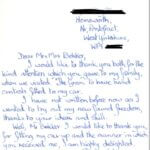 Hemsworth,
Nr. Pontefract,
West Yorkshire,
WF9
Dear Mr & Mrs Bekker,
I would like to thank you both for the
kind attention which you gave to my family,
when we visited "The Forum" to have hand
controls fitted to my car.
I have not written before now as I
wanted to try out my new found freedom,
thanks to your ideas and skill.
Well, Mr Bekker I would like to thank you,
for fitting my car up and the manner in which
you received me, I can highly